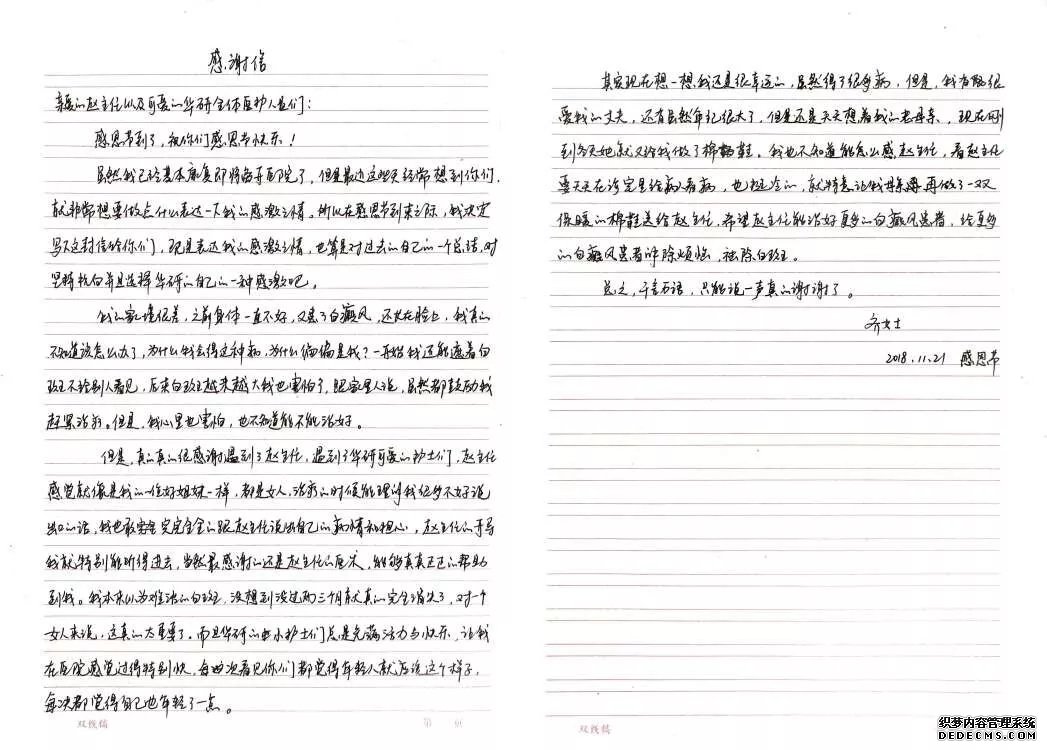 感谢信
亲爱的赵主任以及可爱的华研全体医护人员们：
感恩节到了，祝你们感恩节快乐！
虽然我已经基本康复即将离开医院了，但是最近这些天经常想到你们，
就非常想要做点什么表达一下我的感激之情。所以在感恩节到来之际，我决定
写下这封信给你们，既是表达我的感激之情，也算是对过去的自己的一个总结，对
坚持抗白并且选择华研的自己的一种感激吧。
我的家境很差，之前身体一直不好，又患了白癜风，还长在脸上，我真的
不知道该怎么办了，为什么我会得这种病，为什么偏偏是我？一开始我还能遮着白
斑不给别人看见，后来白斑越来越大我也害怕了，跟家里人说，虽然都鼓励我
赶紧治疗。但是，我心里也害怕，也不知道能不能治好。
但是，真的真的很感谢遇到了赵主任，遇到了华研可爱的护士们，赵主任
感觉就像是我的一位好姐妹一样，都是女人，治疗的时候能理解我很多不好说
出口的话，我也敢完完全全的跟赵主任说出自己的病情和担心，赵主任的
我就特别能听得进去，当然最感谢的还是赵主任的医术，能够真真正正的帮助
到我。我本来以为难治的白斑，没想到没过两三个月就真的完全消失了，对一个
女人来说，这真的太重要了。而且华研的小护士们总是充满活力与快乐，让我
在医院感觉过得特别快，每次看见你们都觉得年轻人就应该这个样子，
每次都觉得自己也年轻了一点。
其实现在想一想，我还是很幸运的，虽然得了很多病，但是，我有个很
爱我的丈夫，还有虽然年纪很大了，但是还是天天想着我的老母亲，现在刚
到冬天她就又给我做了棉鞋。我也不知道能怎么感谢赵主任，看赵主任
要天天在诊室里给病人看病，也挺冷的，就特意让我母亲再做了一双
保暖的棉鞋送给赵主任，希望赵主任能治好更多的白癜风患者，给更多
的白癜风患者解除烦恼，祛除白斑。
总之，千言万语，只能说一声真的谢谢了。
齐女士
2018.11.21 感恩节
双线稿
第 页
双线稿
织梦内容管理系统
DEDECMS.COM